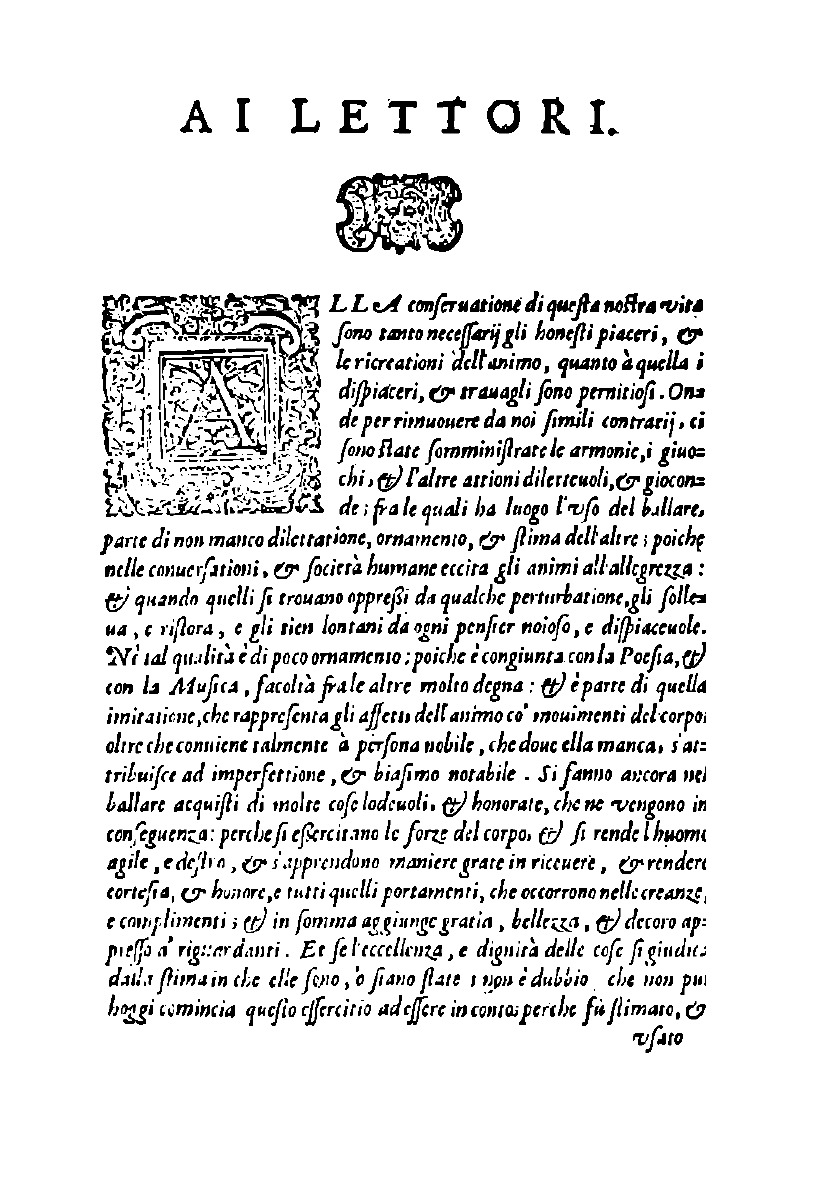 AI LETTORI.
ALLA conſeruatione di queſta noſtra vita
ſono tanto neceſſarij gli honeſti piaceri, &
le ricreationi dell'animo, quanto à quella i
diſpiaceri, & trauagli ſono pernitioſi. On=
de per rimuouere da noi ſimili contrarij, ci
ſono ſtate ſomminiſtrate le armonie, i giuo=
chi, & l'altre attioni diletteuoli, & giocon=
de; fra le quali ha luogo l'vſo del ballare,
parte di non manco dilettatione, ornamento, & ſtima dell'altre; poiche
nelle conuerſationi, & ſocietà humane eccita gli animi all'allegrezza:
& quando quelli ſi trouano oppreßi da qualche perturbatione, gli ſolle=
ua, e riſtora, e gli tien lontani da ogni penſier noioſo, e diſpiaceuole.
Nè tal qualità è di poco ornamento; poiche è congiunta con la Poeſia, &
con la Muſica, facoltà fra le altre molto degna: & è parte di quella
imitatione, che rappreſenta gli affetti dell'animo co' mouimenti del corpo:
oltre che conuiene talmente à perſona nobile, che doue ella manca, s'at=
tribuiſce ad imperfettione, & biaſimo notabile. Si fanno ancora nel
ballare acquiſti di molte coſe lodeuoli, & honorate, che ne vengono in
conſeguenza: perche ſi eſſercitano le forze del corpo, & ſi rende l'huomo
agile, e deſtro, & s'apprendono maniere grate in riceuere, & rendere
corteſia, & honore, e tutti quelli portamenti, che occorrono nelle creanze,
e complimenti; & in ſomma aggiunge gratia, bellezza, & decoro ap=
preſſo a' riguardanti. Et ſe l'eccellenza, e dignità delle coſe ſi giudica
dalla ſtima in che elle ſono, ò ſiano ſtate; non è dubbio, che non pur
hoggi comincia queſto eſſercitio ad eſſere in conto; perche fù ſtimato, &
vſato